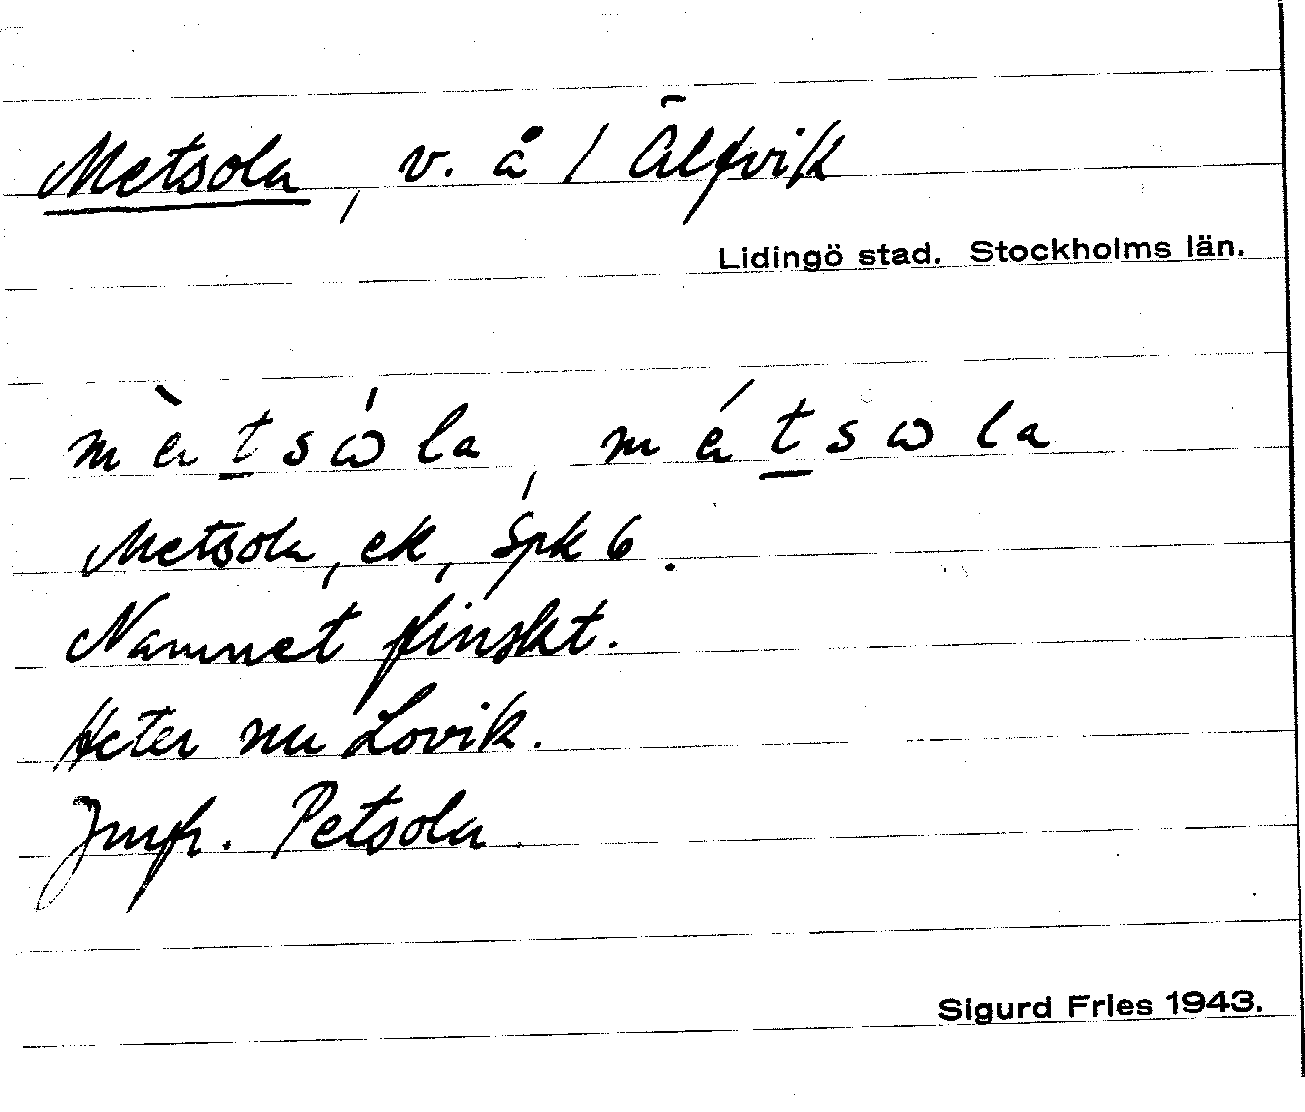 Metsola, v. å / Älfvik
Lidingö stad. Stockholms län.
mètsὼla, métsωla
Metsola, ek, Spk 6.
Namnet finskt.
Heter nu Lovik.
Jmfr. Petsola
Sigurd Fries 1943.